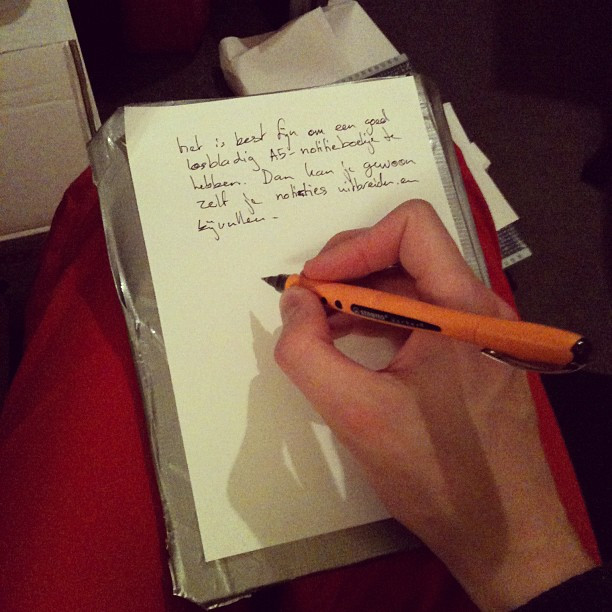 Het is best fijn om een goed
losbladig A5-notitieboekje te
hebben. Dan kan je gewoon
zelf je notities uitbreiden en
bijvullen.
STABILO